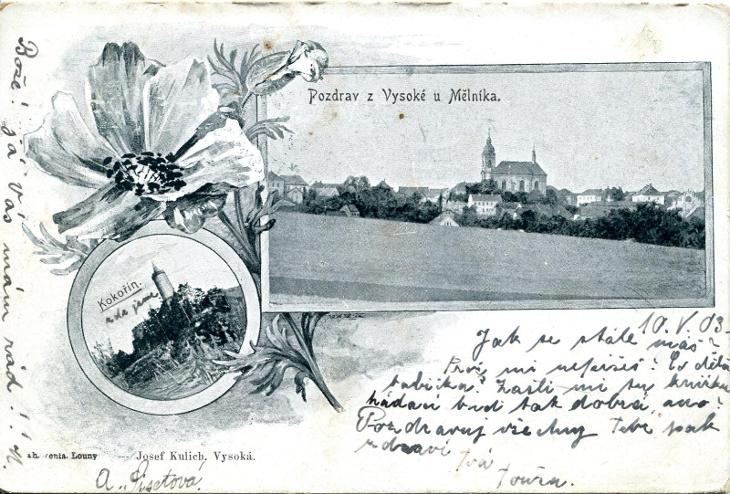 Pozdrav z Vysoké u Mělníka.
Kokořín.
zde jsme
Bože! já Vás mám rád!!
10.V.03.
Jak se stále máš?
Proč mi nepíšeš? Co dělá
babička? Zašli mi tu knížku
hádání buď tak dobrá, ano?
Pozdravuj všechny Tebe pak
zdraví
Tvá
Josef Kulich, Vysoká.
Louny
A. Pisetová.